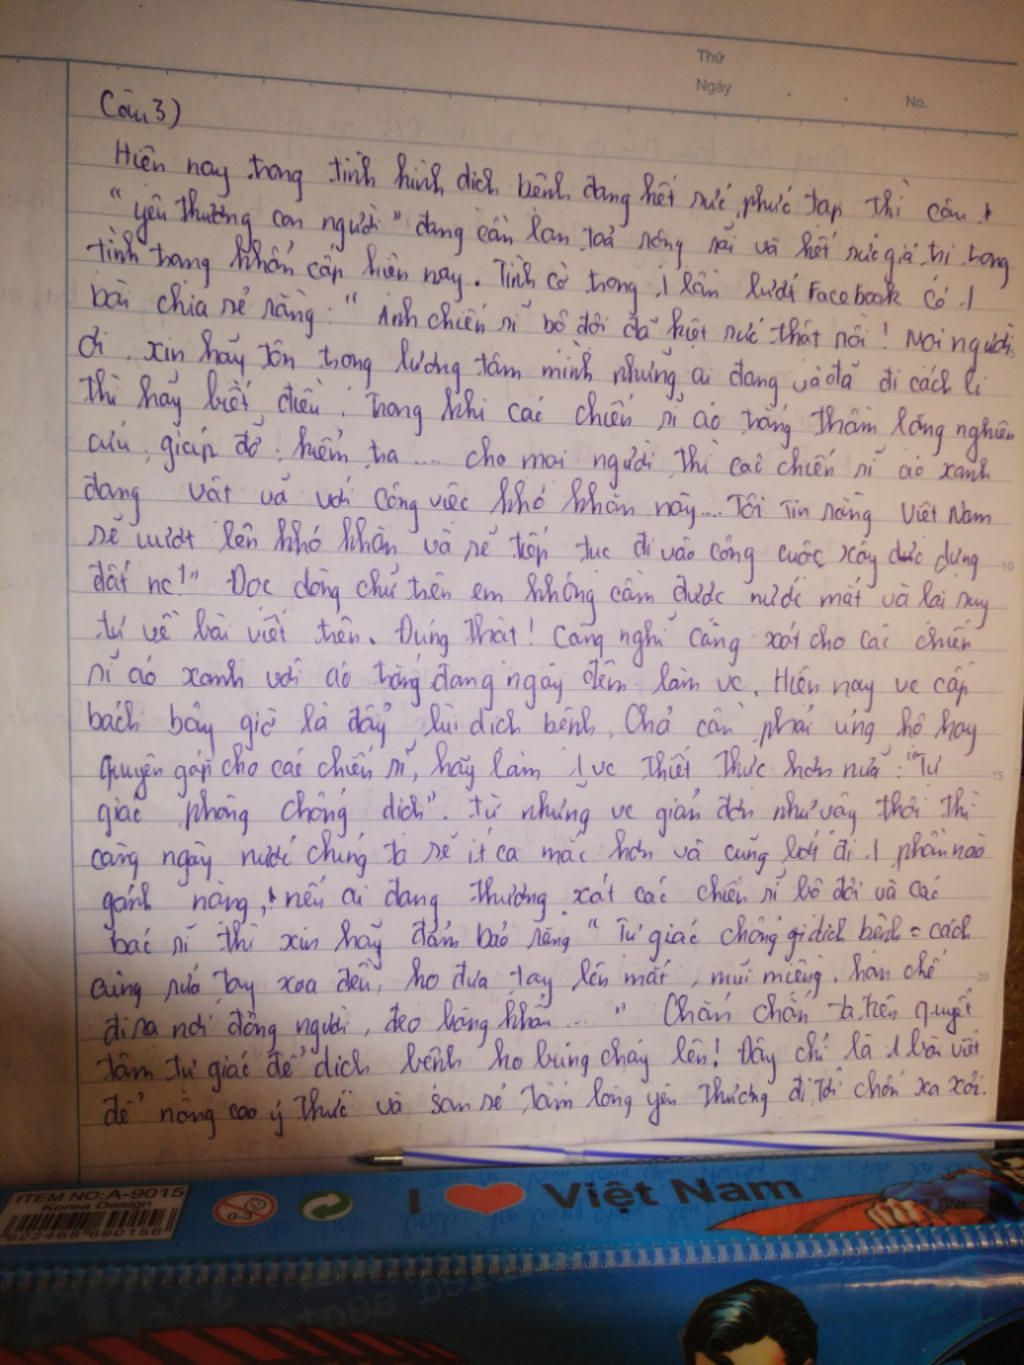 Thứ
Ngày
No.
Câu 3)
Hiện nay trong tình hình dịch bệnh đang hết sức phức tạp thì câu
"yêu thương con người" đang cần lan toả rộng rãi và hết sức giá trị trong
tình trạng khẩn cấp hiện nay. Tình cờ trong 1 lần lướt Facebook có 1
bài chia sẻ rằng: "Anh chiến sĩ bộ đội đã kiệt sức thật rồi! Mọi người
ơi, xin hãy tôn trọng lương tâm mình những ai đang và đã đi cách li
thì hãy biết điều. Trong khi các chiến sĩ áo trắng thầm lặng nghiên
cứu, giúp đỡ, kiểm tra .... cho mọi người thì các chiến sĩ áo xanh
đang vất vả với công việc khó khăn này.... Tôi tin rằng Việt Nam
sẽ vượt lên khó khăn và sẽ tiếp tục đi vào công cuộc xây dựng
đất nc!" Đọc dòng chữ trên em không cầm được nước mắt và lại suy
tư về bài viết trên. Đúng thật! Càng nghĩ càng xót cho các chiến
sĩ áo xanh với áo trắng đang ngày đêm làm vc. Hiện nay vc cấp
bách bây giờ là đẩy lùi dịch bệnh. Chả cần phải ủng hộ hay
quyên góp cho các chiến sĩ, hãy làm 1 vc thiết thực hơn nữa: "Tự
giác phòng chống dịch". Từ những vc giản đơn như vậy thôi thì
càng ngày nước chúng ta sẽ ít ca mắc hơn và cũng bớt đi 1 phần nào
gánh nặng, nếu ai đang thương xót các chiến sĩ bộ đội và các
bác sĩ thì xin hãy đảm bảo rằng "Tự giác chống dịch bệnh = cách
cùng rửa tay xoa đều, ko đưa tay lên mắt, mũi miệng, hạn chế
đi ra nơi đông người, đeo băng khẩn ...." Chắn chắn ta trên quyết
tâm tự giác để dịch bệnh ko bùng cháy lên! Đây chỉ là 1 bài viết
để nâng cao ý thức và san sẻ tấm lòng yêu thương đi tới chốn xa xôi.
10
15
20
ITEM NO:A-9015
Korea Design
0-3
I Việt Nam